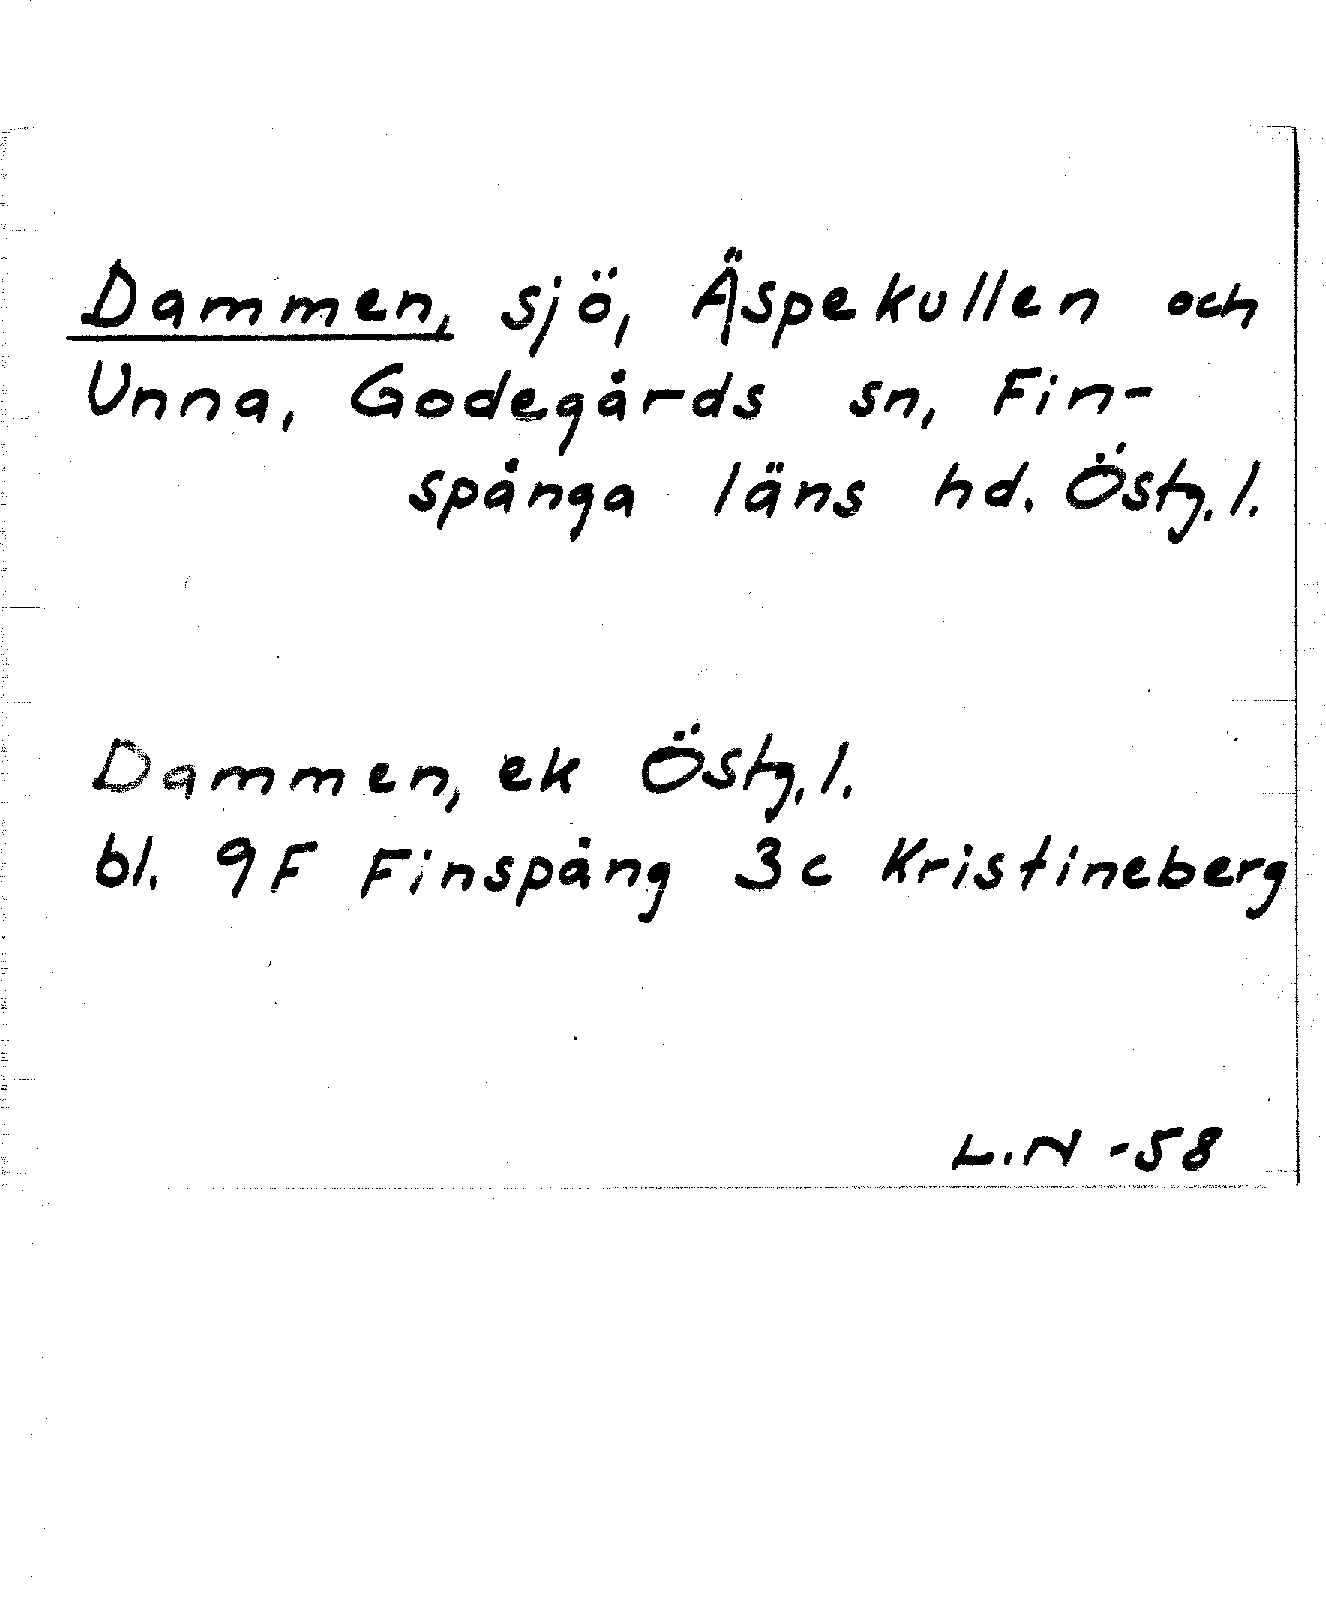 Dammen, sjö, Äspekullen och
Unna, Godegårds sn, Fin-
spånga läns hd. Östg. l.
Dammen, ek Östg. l.
bl. 9F Finspång 3c Kristineberg
L.N -58